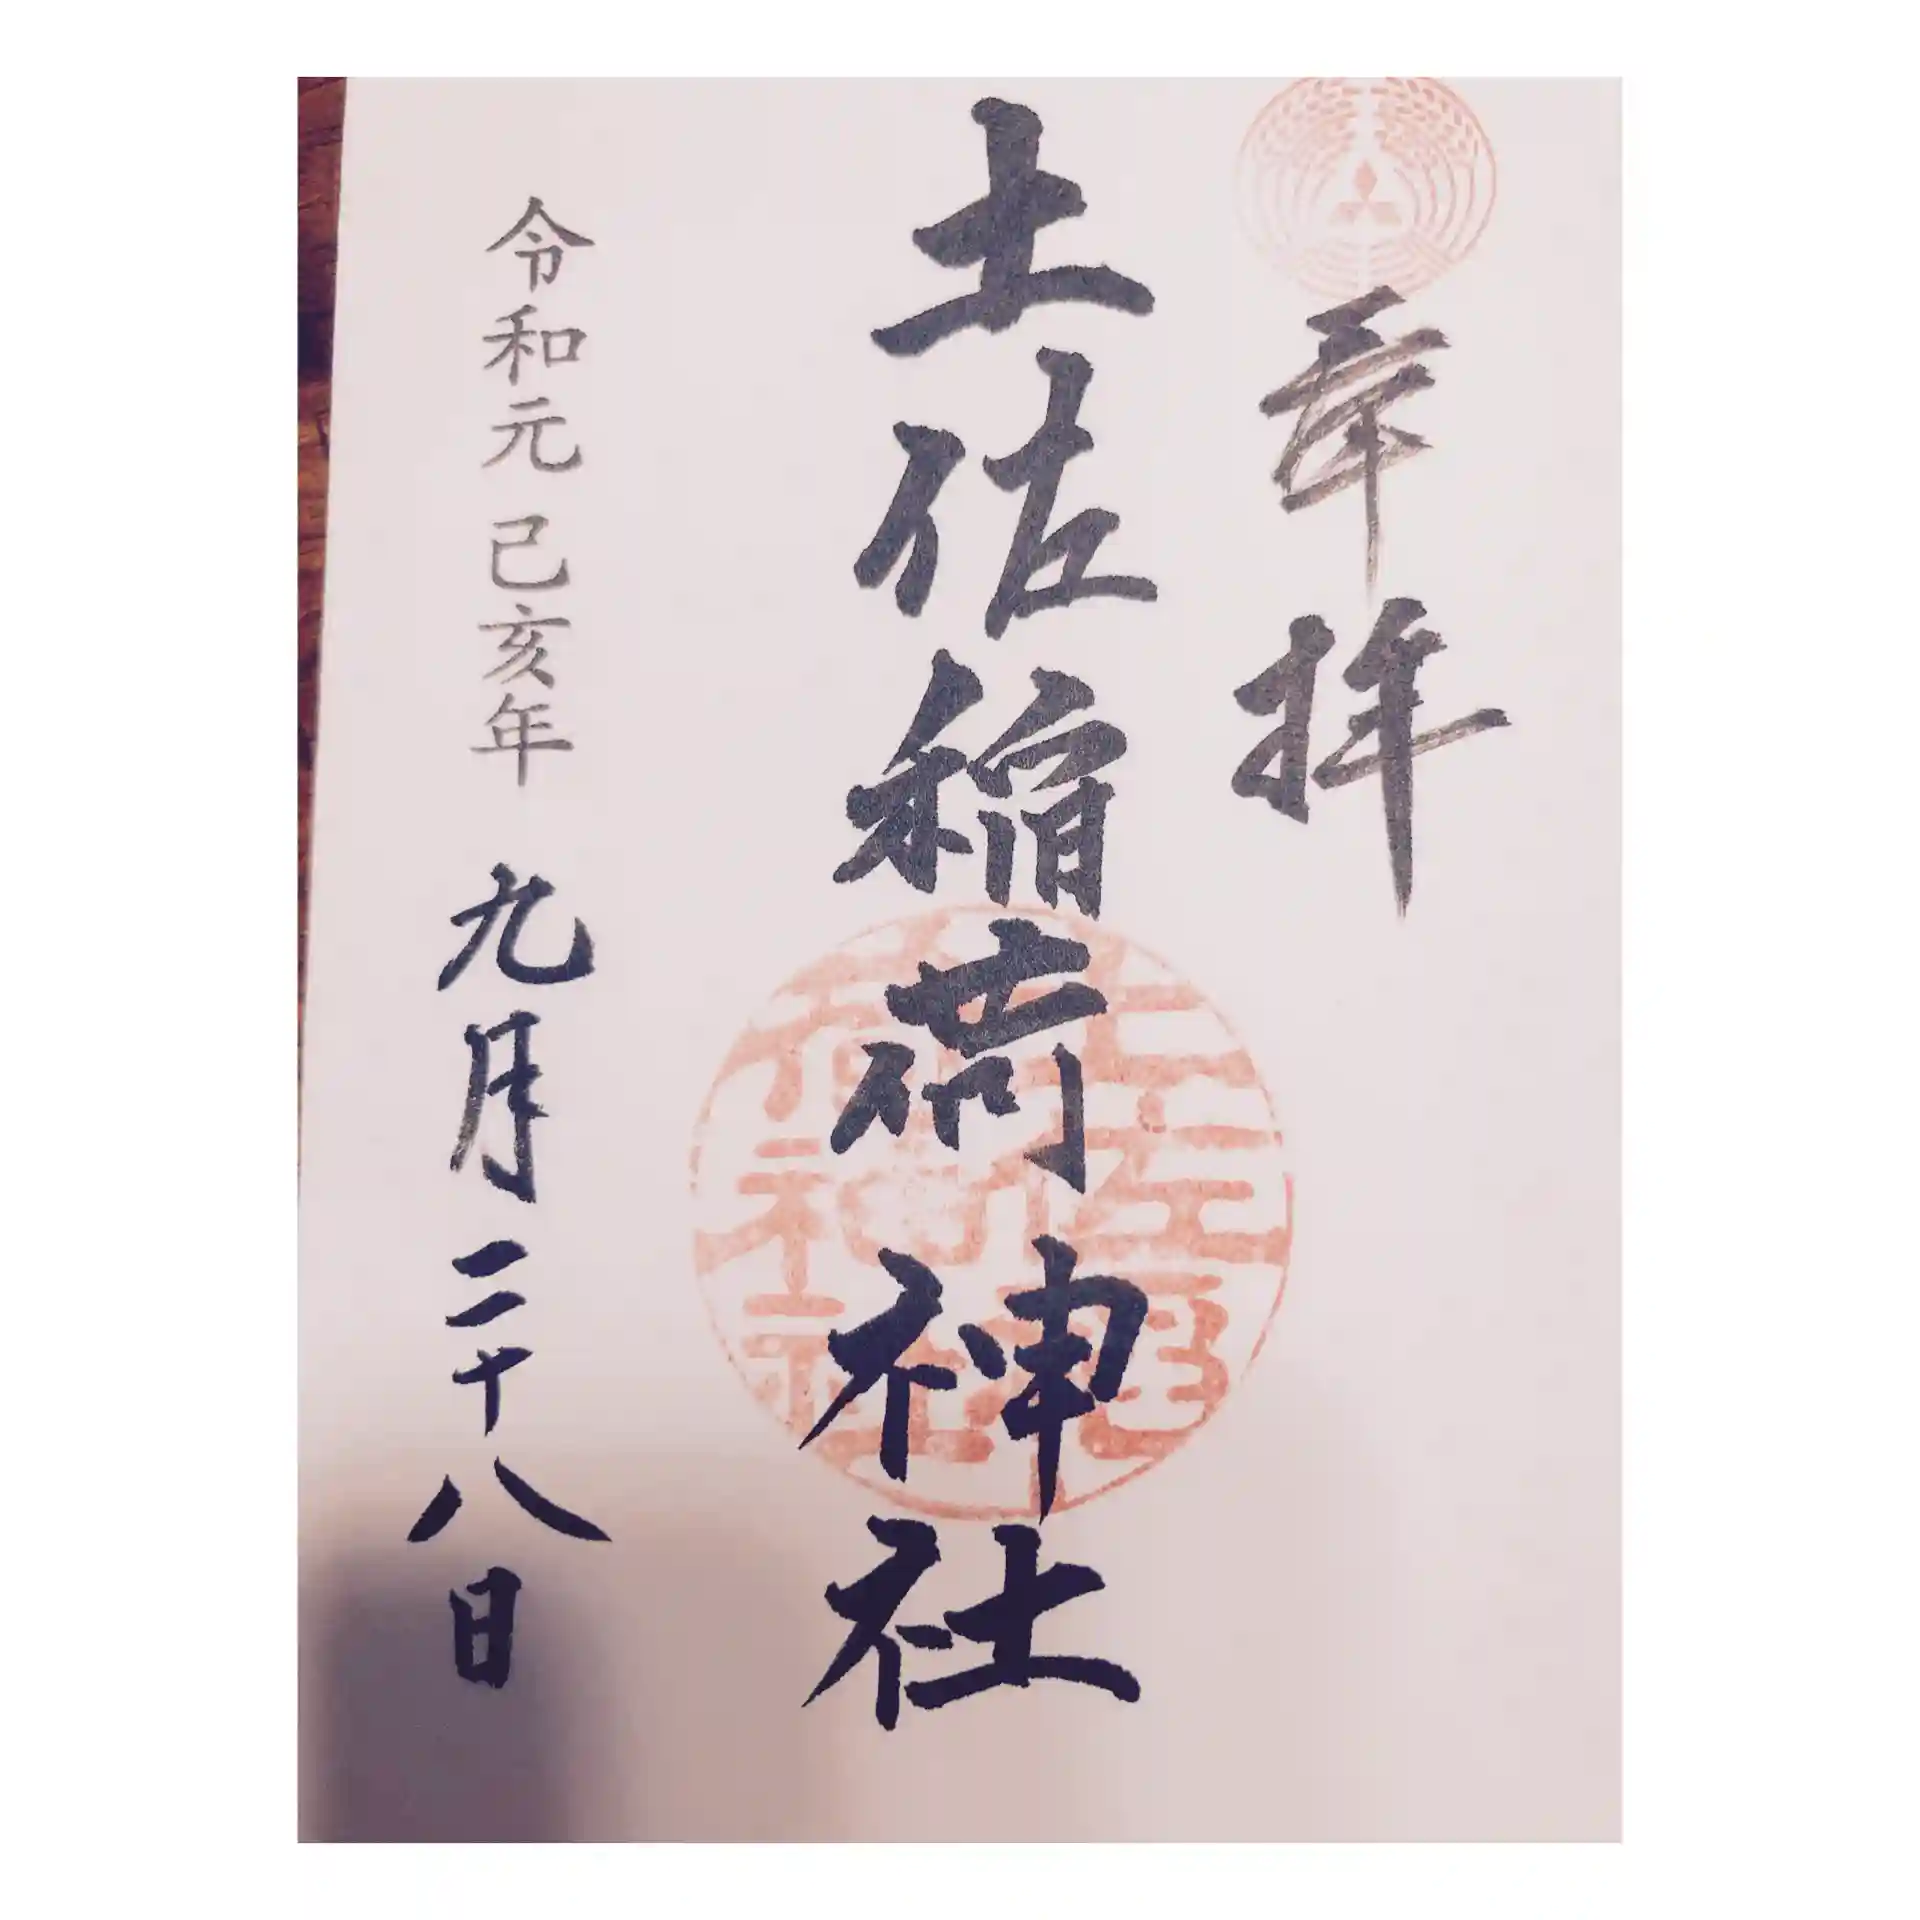 奉拝
土佐稲荷神社
土佐稲荷神社
令和元己亥年 九月二十八日